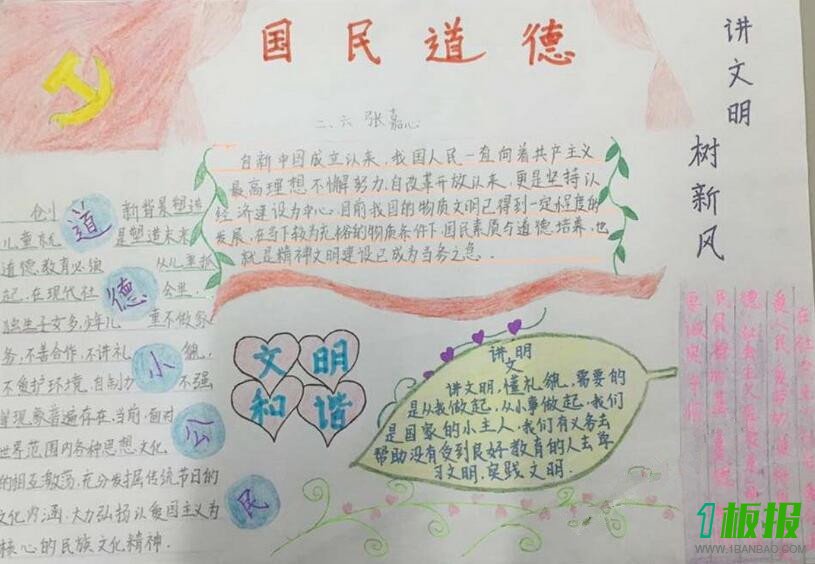 国民道德
讲文明
树新风
二、六 张嘉心
自新中国成立以来，我国人民一直向着共产主义
最高理想不懈努力，自改革开放以来，更是坚持以
经济建设为中心。目前我国的物质文明已得到一定程度的
发展，在当下较为充裕的物质条件下，国民素质与道德培养，也
就是精神文明建设已成为当务之急。
道德小公民
创 新背景塑造
儿童就 是塑造未来
道德教育必须 从儿童抓
起，在现代社 会里，
独生子女多，少年儿 童不做家
务，不善合作，不讲礼 貌，
不爱护环境，自制力 不强
等现象普遍存在，当前，面对
世界范围内各种思想文化
的相互激荡，充分发掘传统节日的
文化内涵，大力弘扬以爱国主义为
核心的民族文化精神．
文明
和谐
讲文明
讲文明，懂礼貌，需要的
是从我做起，从小事做起，我们
是国家的小主人，我们有义务去
帮助没有受到良好教育的人去学
习文明，实践文明．
1板报
WWW.1BANBAO.COM